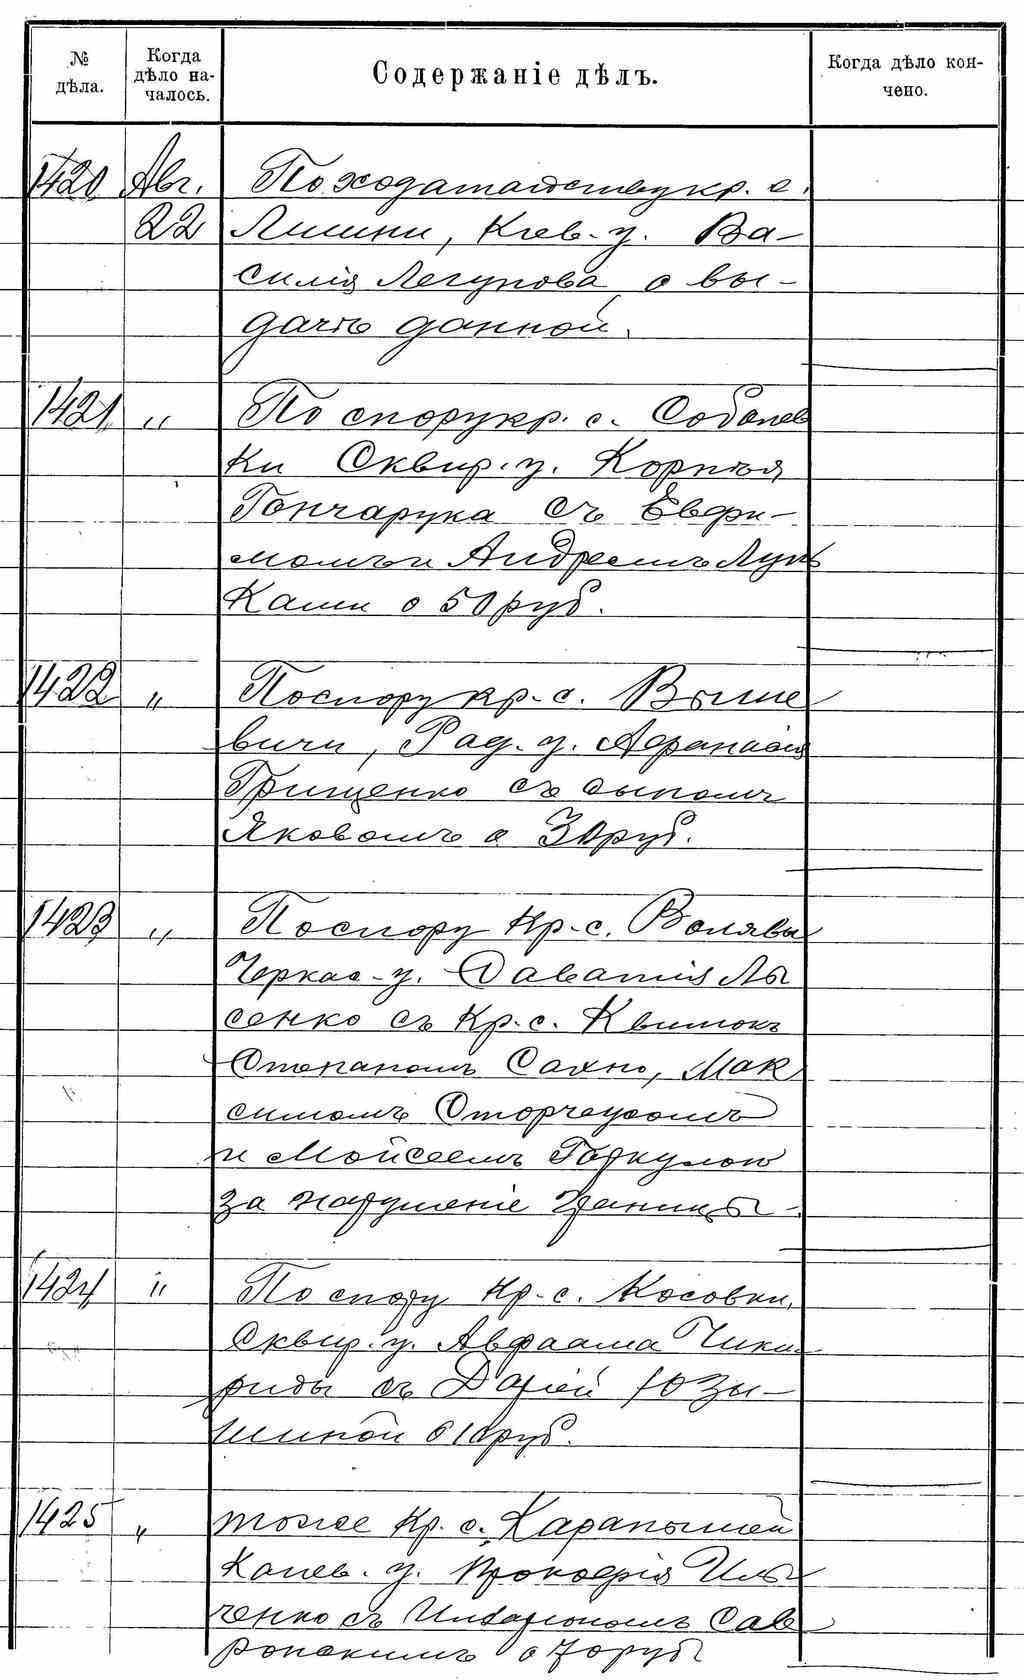 № дѣла.
Когда дѣло началось.
Содержаніе дѣлъ.
Когда дѣло кончено.
1420 Авг. По ходатайству кр. с.
22 Лишни, Кіев. у. Ва-
силія Легунова о вы-
дачѣ данной.
1421 " По спору кр. с. Соболев
ки Сквир. у. Корнѣя
Гончарука съ Евфи-
момъ и Андреемъ
ками о 50 руб.
1422 " По спору кр. с. Выше
вичи, Рад. у. Афанасія
Грищенко съ сыномъ
Яковомъ о 30 руб.
1423 " По спору кр. с. Валявы
Черкас. у. Саватія Лы
сенко съ кр. с. Квитокъ
Степаномъ Сахно, Мак
симомъ
и Мойсеемъ
за нарушеніе границы.
1424 " По спору кр. с. Косовки,
Сквир. у. Авраама Чики
риды съ Даріей Юзы-
шиной о 10 руб.
1425 " тоже кр. с. Карапышей
Канев. у. Прокофія Иль
ченко съ Иларіономъ Сав
ронскимъ о 70 руб